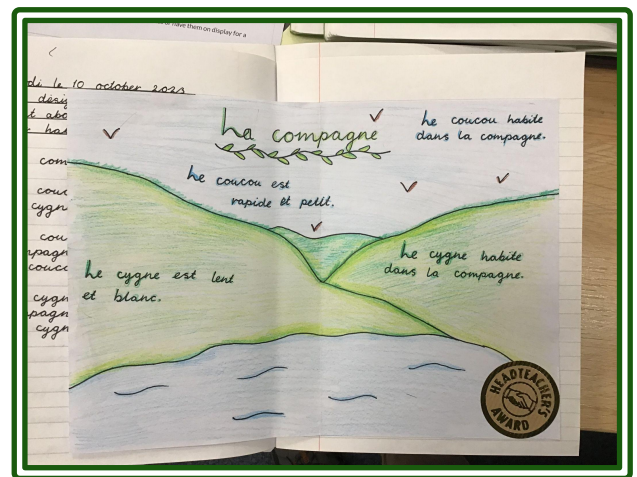 or have them on display for a
di le 10 october 2023
desig
t abo
has
com
couc
cygn
cou
pagn
couco
cygn
pagn
cygn
La compagne
Le coucou habite
dans la compagne.
Le coucou est
rapide et petit.
Le cygne habite
dans la compagne.
Le cygne est lent
et blanc.
HEADTEACHER'S
AWARD